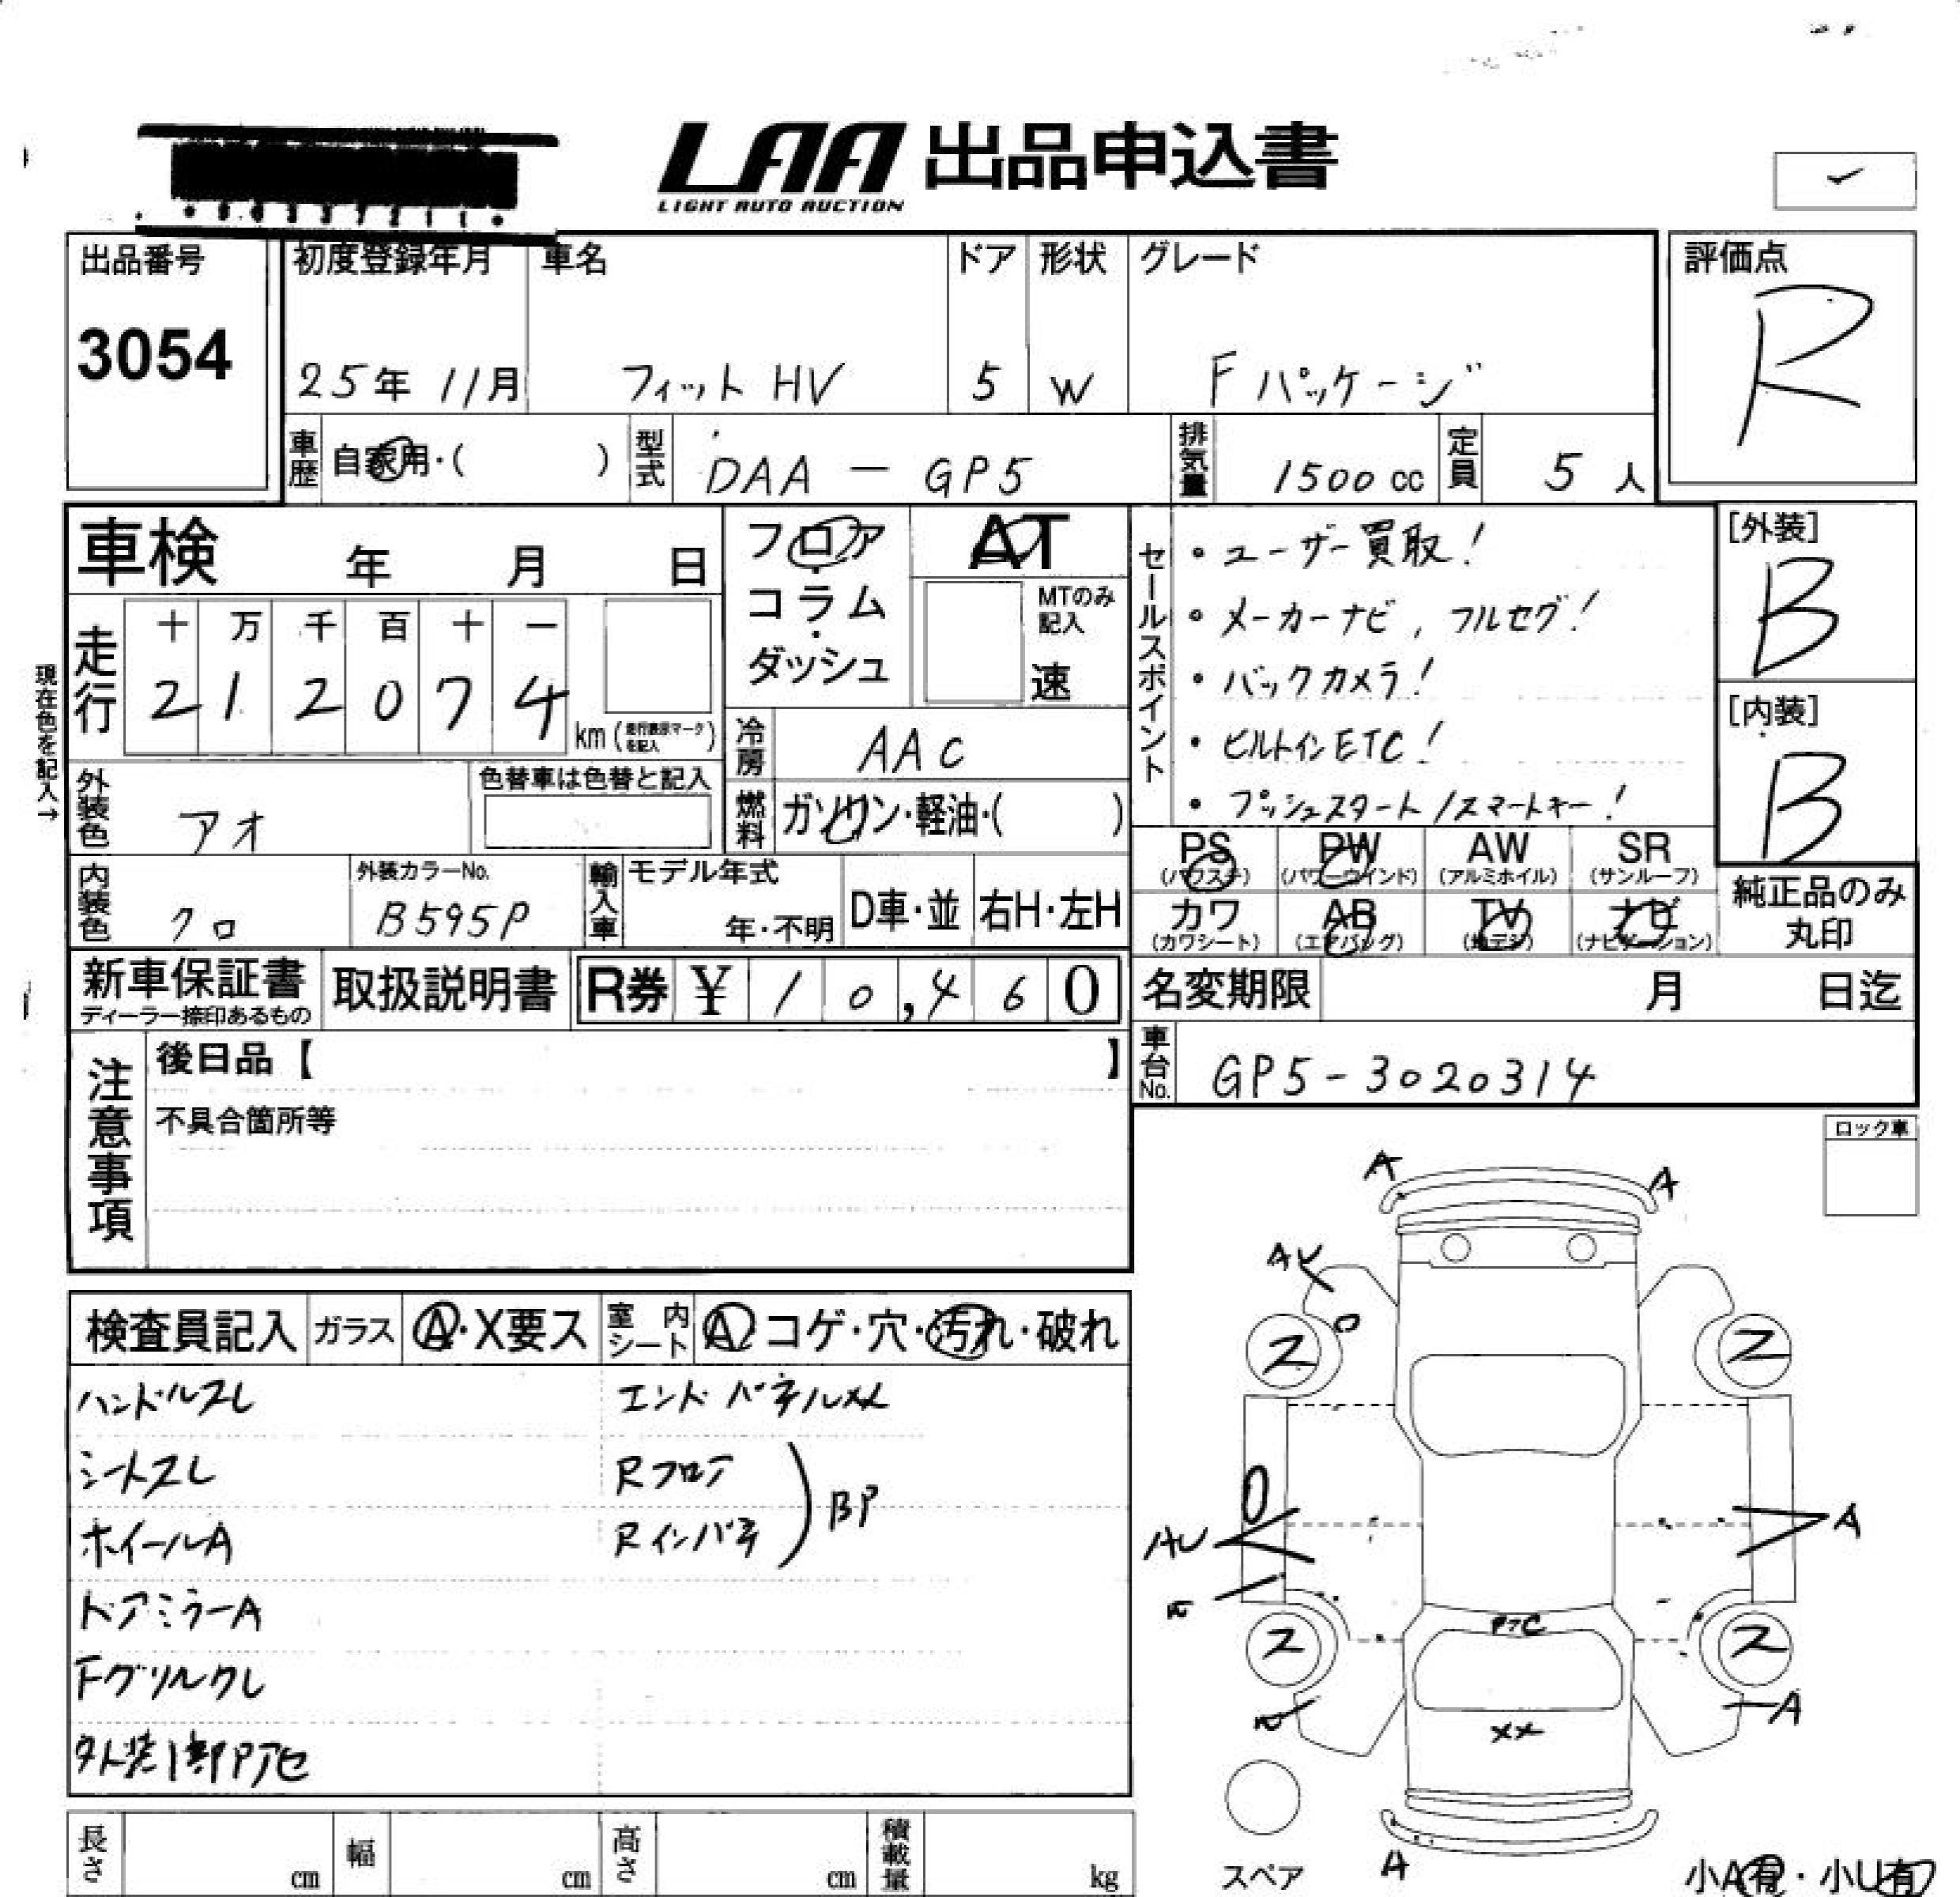 LAA 出品申込書
LIGHT AUTO AUCTION
出品番号
3054
初度登録年月
25年 11月
車名
フィット HV
ドア
5
形状
W
グレード
F パッケージ
評価点
R
車歴
自家用・( )
型式
DAA - GP5
排気量
1500 cc
定員
5 人
車検 年 月 日
フロア・コラム・ダッシュ
AT
MTのみ記入
速
走行
十 万 千 百 十 一
2 1 2 0 7 4
km (走行表示マークを記入)
現在色を記入→
冷房
AAC
外装色
アオ
色替車は色替と記入
燃料
ガソリン・軽油・( )
内装色
クロ
外装カラーNo.
B595P
輸入車
モデル年式
年・不明
D車・並
右H・左H
セールスポイント
・ユーザー買取!
・メーカーナビ, フルセグ!
・バックカメラ!
・ビルトインETC!
・プッシュスタート/スマートキー!
[外装]
B
[内装]
B
PS (パワステ)
PW (パワーウインド)
AW (アルミホイル)
SR (サンルーフ)
カワ (カワシート)
AB (エアバッグ)
TV (地デジ)
ナビ (ナビゲーション)
純正品のみ丸印
新車保証書
ディーラー捺印あるもの
取扱説明書
R券 ¥ 10,460
名変期限 月 日迄
車台No.
GP5-3020314
注意事項
後日品【 】
不具合箇所等
ロック車
検査員記入
ガラス
A・X要ス
室内シート
A・コゲ・穴・汚れ・破れ
ハンドルスレ
シートスレ
ホイールA
ドアミラーA
Fグリルワレ
外装1部Pアセ
エンドパネルXX
Rフロア
Rインパネ
BP
A
A
AU
ス
ス
AU
A
ス
ス
XX
A
A
スペア
長さ cm
幅 cm
高さ cm
積載量 kg
小A有・小U有